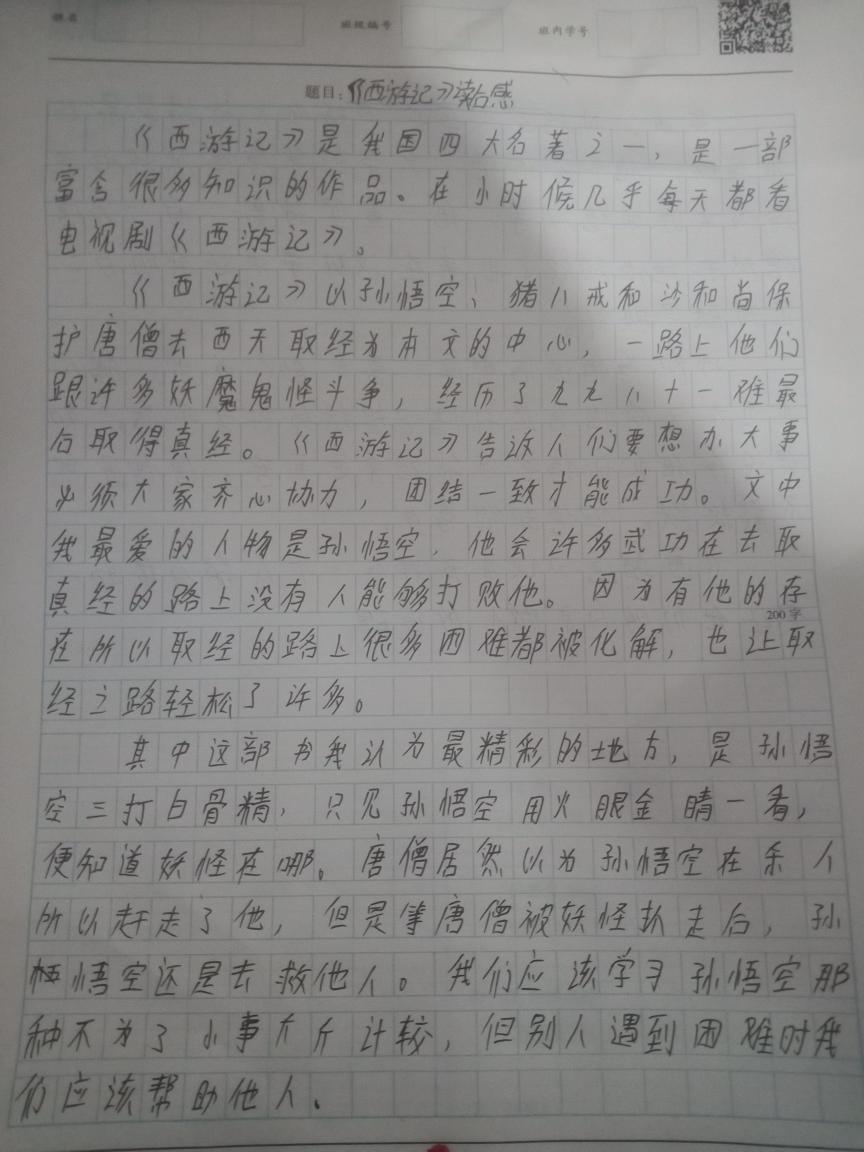 姓名 班级编号 班内学号
题目：《西游记》读后感
《西游记》是我国四大名著之一，是一部
富含很多知识的作品。在小时候几乎每天都看
电视剧《西游记》。
《西游记》以孙悟空、猪八戒和沙和尚保
护唐僧去西天取经为本文的中心，一路上他们
跟许多妖魔鬼怪斗争，经历了九九八十一难最
后取得真经。《西游记》告诉人们要想办大事
必须大家齐心协力，团结一致才能成功。文中
我最爱的人物是孙悟空，他会许多武功在去取
真经的路上没有人能够打败他。因为有他的存
200字
在所以取经的路上很多困难都被化解，也让取
经之路轻松了许多。
其中这部书我认为最精彩的地方，是孙悟
空三打白骨精，只见孙悟空用火眼金睛一看，
便知道妖怪在哪。唐僧居然以为孙悟空在杀人
所以赶走了他，但是等唐僧被妖怪抓走后，孙
悟空还是去救他人。我们应该学习孙悟空那
种不为了小事斤斤计较，但别人遇到困难时我
们应该帮助他人。